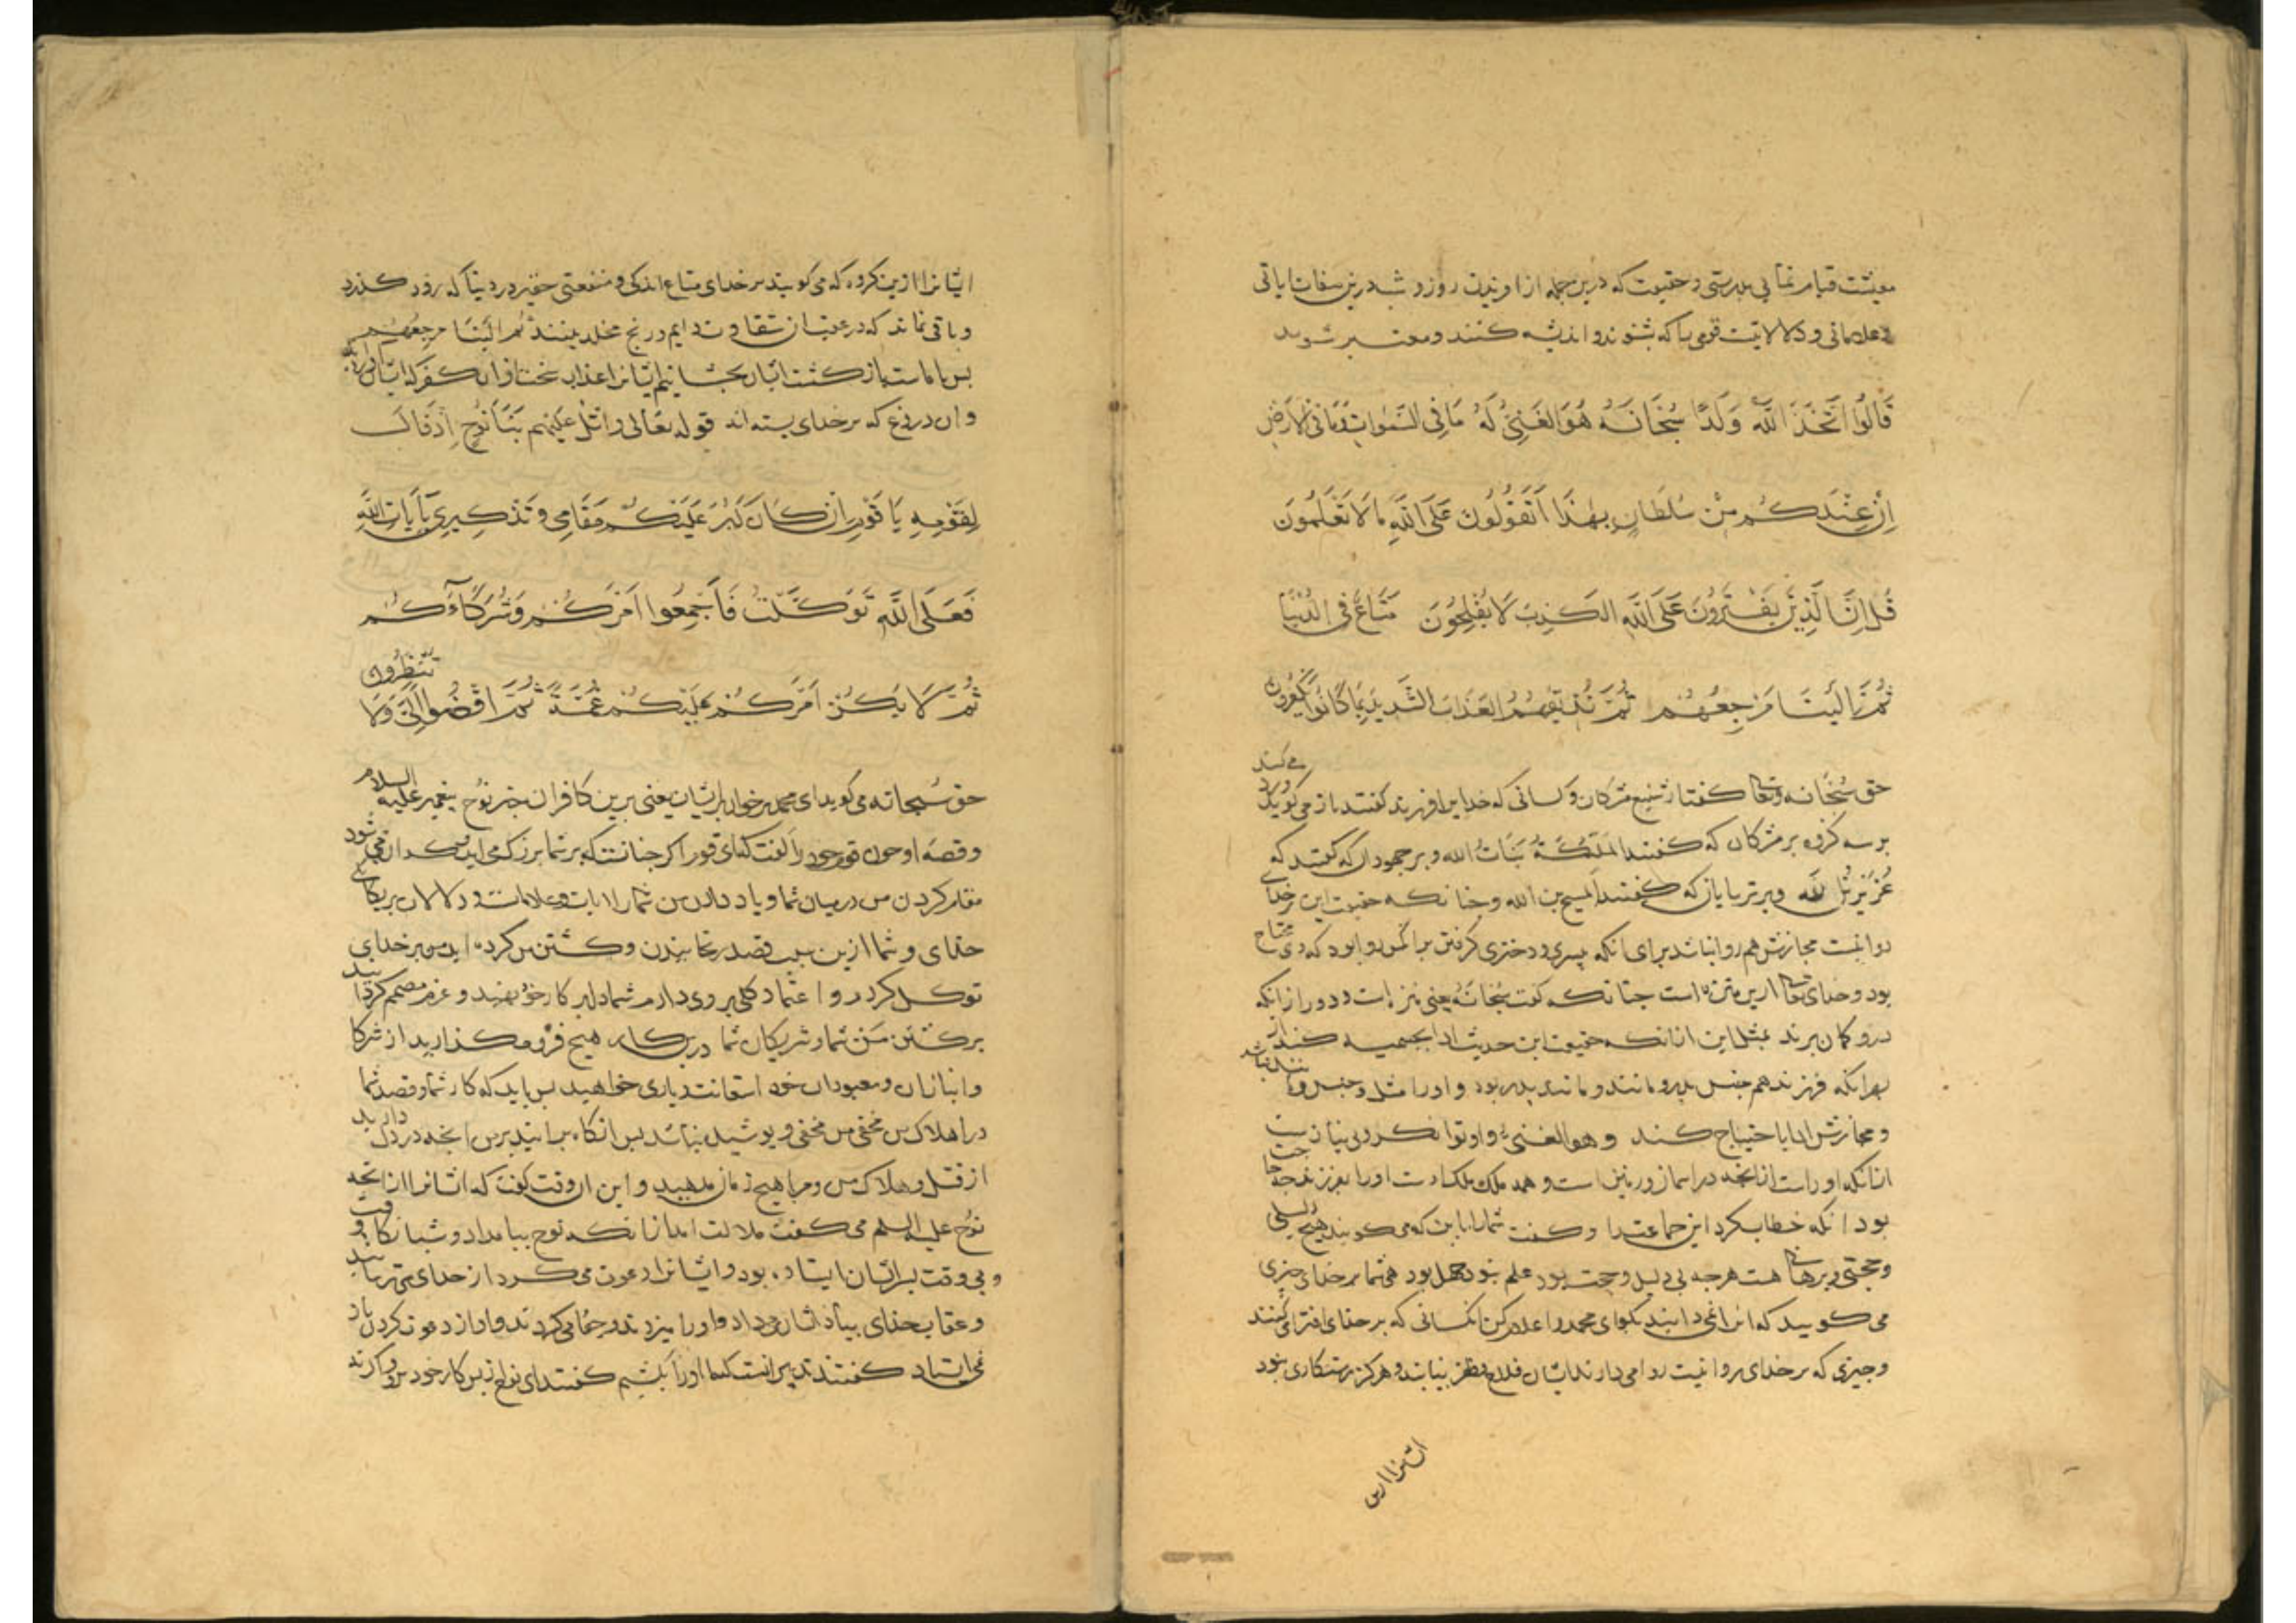 معیشت قیام نمایی بدرستی و حقیقت که درین جمله از آفریدن روز و شب درین صفات ایاتی
علاماتی و دلالاتیست قومی را که بشنوند و اندیشه کنند و معتبر شوند
قَالُوا اتَّخَذَ اللَّهُ وَلَدًا سُبْحَانَهُ هُوَ الْغَنِيُّ لَهُ مَا فِي السَّمٰوَاتِ وَمَا فِي الْأَرْضِ
إِنْ عِنْدَكُمْ مِنْ سُلْطَانٍ بِهٰذَا أَتَقُولُونَ عَلَى اللَّهِ مَا لَا تَعْلَمُونَ
قُلْ إِنَّ الَّذِينَ يَفْتَرُونَ عَلَى اللَّهِ الْكَذِبَ لَا يُفْلِحُونَ مَتَاعٌ فِي الدُّنْيَا
ثُمَّ إِلَيْنَا مَرْجِعُهُمْ ثُمَّ نُذِيقُهُمُ الْعَذَابَ الشَّدِيدَ بِمَا كَانُوا يَكْفُرُونَ
حق سُبْحَانَه وتعا کفتار شنیع مشرکان و کسانی که خدایرا فرزند کفتند باز می کوید و رد می کند
بر سه کروه بر مشرکان که کفتند المَلٰئِکَةُ بَنَاتُ الله و بر جهودان که کفتند که
عُزَیْرٌ ابْنُ الله و بر ترسایان که کفتند المسیح بن الله و چنانکه حقیقت این بر خدای
روا نیست مجازش هم روا نباشد برای انکه پسری و دختری کرفتن بر انکس روا بود که وی محتاج
بود و خدای تعا ازین منزه است چنانکه کفت سُبْحَانَهُ یعنی منزه است و دور از انکه
درو کمان برند بمثل این از انکه حقیقت این حدیث ادا بجسمیه کند از
بهر انکه فرزند هم جنس پدر و مانند و مانند پدر بود و او را مثل و جنس و مانند نباشد
و مجازش ادا با احتیاج کند و هو الغنیُّ و او توانکر و بی نیازست
از انکه او راست از انچه در اسمان و زمین است و همه ملک ملک اوست او را بفرزند چه حاجت
بود انکه خطاب کرد این جماعت را و کفت شما را باین که می کویند هیچ دلیلی
و حجتی و برهانی هست هرچه بی دلیل و حجت بود علم نبود جهل بود هی شما بر خدای چیزی
می کویید که انرا نمی دانید بکو ای محمد و اعلام کن انکسانی که بر خدای افترا می کنند
و چیزی که بر خدای روا نیست روا می دارند ایشان فلاح و ظفر نیابند و هرکز رستکاری نبود
ایشانرا ازین
ایشانرا ازین کروه که می کویند بر خدای متاع اندکی و منفعتی حقیر در دنیا که زود کذرد
و باقی نماند که در عقب ان شقاوت دایم و رنج مخلد بینند ثم الینا مرجعهم
پس با ماست بازکشت ایشان بچشانیم ایشانرا عذاب سخت از ان کفر که ایشان اورده اند
و ان دروغ که بر خدای بسته اند قوله تعالی وَاتْلُ عَلَيْهِمْ نَبَأَ نُوحٍ إِذْ قَالَ
لِقَوْمِهِ يَا قَوْمِ إِنْ كَانَ كَبُرَ عَلَيْكُمْ مَقَامِي وَتَذْكِيرِي بِآيَاتِ اللَّهِ
فَعَلَى اللَّهِ تَوَكَّلْتُ فَأَجْمِعُوا أَمْرَكُمْ وَشُرَكَاءَكُمْ
ثُمَّ لَا يَكُنْ أَمْرُكُمْ عَلَيْكُمْ غُمَّةً ثُمَّ اقْضُوا إِلَيَّ وَلَا تُنْظِرُونِ
حق سُبحانه می کوید ای محمد بر خوان بر ایشان یعنی برین کافران خبر نوح پیغمبر علیه السلام
و قصّه او چون قوم خود را کفت که ای قوم اکر چنانست که بر شما بزرک می اید و کران می شود
مقام کردن من در میان شما و یاد دادن من شما را ایات و علامات و دلالات بریکانکی
خدای و شما ازین سبب قصد رنجانیدن و کشتن من کرده اید من بر خدای
توکل کردم و اعتماد کلی بر وی دارم شما دل بر کار خود بنهید و عزم مصمم کردانید
بر کشتن من شما و شریکان شما درین کار هیچ فرو مکذارید از شرکا
و انبازان و معبودان خود استعانت و یاری خواهید پس باید که کار شما و قصد شما
در اهلاک من مخفی من مخفی و پوشیده نباشد پس انکاه برانید بر من انچه در دل دارید
از قتل و هلاک من و مرا هیچ زمان مدهید و این ان وقت کفت که ایشانرا از انچه
نوح علیه السلم می کفت ملالت امد از انکه نوح ببامداد و شبانکاه وقت
و بی وقت بر ایشان ایستاده بود و ایشانرا دعوت می کرد از خدای می ترسانید
و عقاب خدای بیاد ایشان می داد و او را میزدند و جفا می کردند و او از دعوت کردن باز
نمی ایستاد کفتند تدبیر انست که ما او را بکشیم کفتند ای نوح ازین کار خود برو و اکرنه